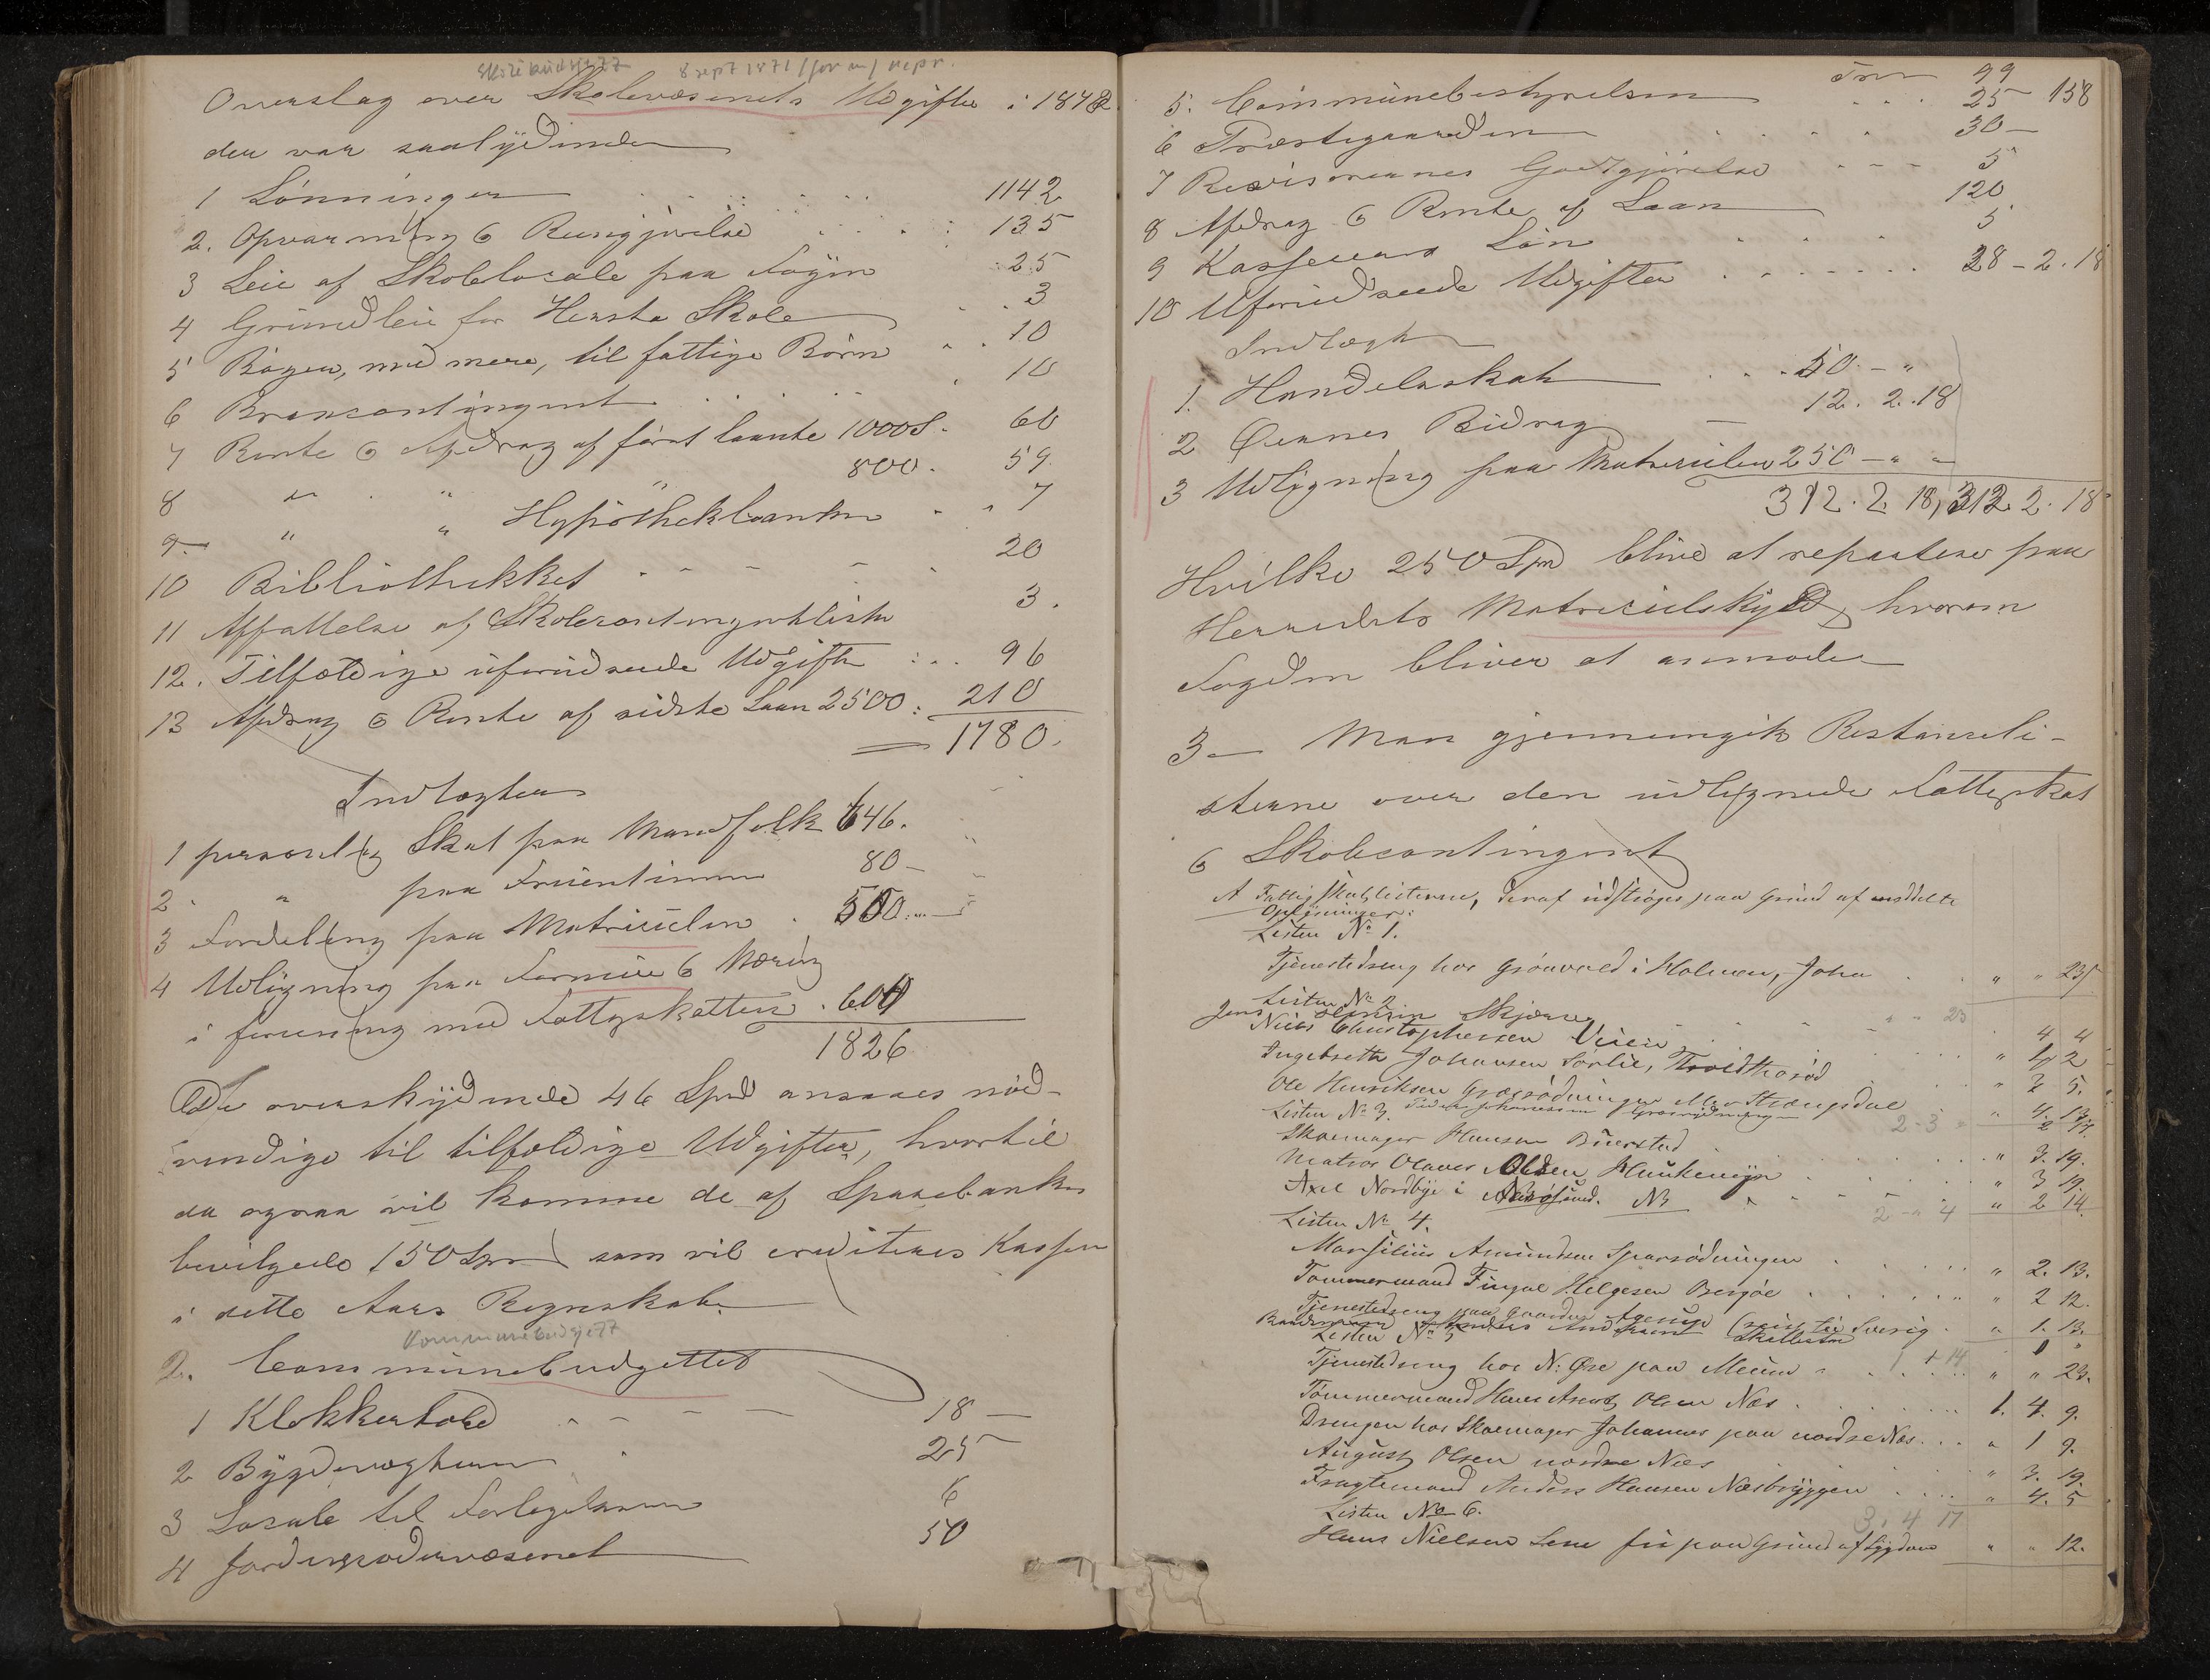 Skolebudsjett 8 sept 1871 / form / repr.
Overslag over Skolevæsenets Udgifter i 1872
der var saalydende
1 Lönninger 1142
2. Opvarming & Rengjörelse 135
3 Leie af Skolelocale paa Föÿen 25
4 Grundleie for Herstø Skole 3
5 Böger, med mere, til fattige Börn 10
6 Brancontingent 10
7 Rente & Afdrag af först laante 1000 S. 60
8 " " " 800. 59
9 " " Hypothekbanken 7
10 Bibliothekket 20
11 Affattelse af Skolecontingentlister 3.
12. Tilfældige uforudseede Udgifter 96
13 Afdrag & Rente af sidste Laan 2500: 210
= 1780.
Indtægter
1 personlig Skat paa Mandfolk 646.
2. " paa Fruentimmer 80 -
3 Fordeling paa Matriculen 500.
4 Udligning paa Formue & Næring
i forening med Fattigskatten 600
1826
De overskÿdende 46 Spd ansaaes nöd-
vendige til tilfældige Udgifter, hvortil
da ogsaa vil komme de af Sparebanken
bevilgede 150 Spd som vil crediteres Kassen
i dette Aars Regnskab.
Kommunebudsjett
2. Communebudgettet
1 Klokkertold 18 -
2 Bÿgdevægteren 25
3 Locale til Forligelsen 6
4 Jordemodervæsenet 50
Trsp 99
5. Communebestyrelsen 25 158
6 Præstegaarden 30 -
7 Revisorernes Godtgjörelse 5
8 Afdrag & Rente af Laan 120
9 Kasserens Lön 5
10 Uforudseede Udgifter 28 - 2. 18
Indtægt
1. Handelsskat 50 - "
2 Öernes Bidrag 12. 2. 18
3 Udligning paa Matriculen 250 - " -
312. 2. 18, 312. 2. 18
Hvilke 250 Spd blive at repartere paa
Herredets Matriculskÿld, hvorom
Fogden bliver at anmode
3 - Man gjennemgik Restanceli-
sterne over den udlignede Fattigskat
& Skolecontingent
A Fattigskatlisterne, deraf udströges paa Grund af meddelte
Oplysninger:
Listen No 1.
Tjenestedreng hos Grönvold i Holmen, John " " 23
Listen No 2.
Jens Skjærsø " " 23
Niels Christophersen Veien 4 4
Ingebreth Johansen Sørlie, " 1 2
Ole Henriksen Græsrödningen " 3 5.
Listen No 3. Peder Johannessen 2-3 " 4. 13.
Skomager Hansen Buerstad " 3. 19.
Matros Olaves Olsen " 3 19.
Axel Nordbye i 2 - " 4 " 2 14.
Listen No 4.
Marsilius Amundsen Sparrödningen " 2. 13.
Tømmermand Fingal Helgesen Bergöe " 2 12.
Tjenestedreng paa Gaarden Agerup (reist til Sverig " 1. 13.
Listen No 5 Skilleström 1 "
Tjenestedreng hos N: Öre paa Meum 1 + 14 " " 23.
Tømmermand Hans Arent Olsen Næs 1. 4. 9.
Drengen hos Skomager Johannes paa nordre Næs " 1 9.
August Olsen nordre Næs " 3. 19.
Fragtemand Anders Hansen Næsbryggen " 4. 5
Listen No 6. 3. 4 17
Hans Nielsen Lene fri paa Grund af Sygdom " " 12.